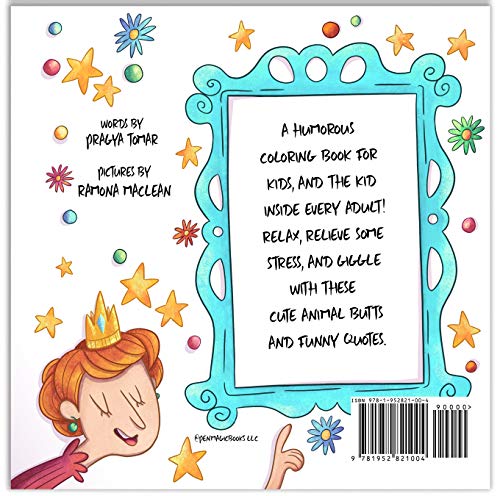 WORDS BY
PRAGYA TOMAR
PICTURES BY
RAMONA MACLEAN
A HUMOROUS
COLORING BOOK FOR
KIDS, AND THE KID
INSIDE EVERY ADULT!
RELAX, RELIEVE SOME
STRESS, AND GIGGLE
WITH THESE
CUTE ANIMAL BUTTS
AND FUNNY QUOTES.
ISBN 978-1-952821-00-4
90000>
9 781952 821004
©PENMAGICBOOKS LLC